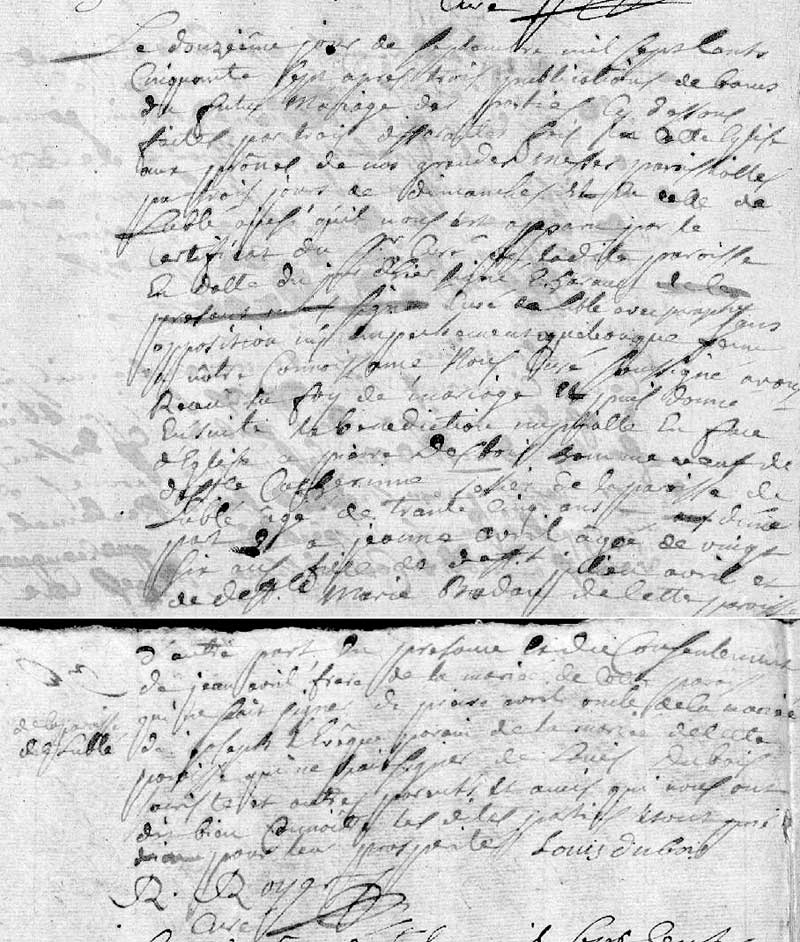 Curé
Le douzième jour de Septembre mil sept cents
Cinquante Sept apres trois publications de bans
du futur Mariage des parties cy dessous
faites par trois differantes fois en cette Eglise
aux prônes de nos grandes Messes paroissialles
par trois jours de dimanches Et En celle de
Lublé ainsi qu'il nous est apparu par le
Certificat du Sr Curé de ladite paroisse
En datte du jour d'hier Signé
Curé de Lublé sans
opposition ni empechement quelconque venu
à nôtre Connoissance Nous Curé Soussigné avons
Receu la foy de mariage Et puis Donné
Ensuite la benediction nuptialle En face
d'Eglise a pierre Dubois homme veuf de
deffte Catherinne de la paroisse de
Lublé agé de trante Cinq ans d'une
part Et a jeanne avril agée de vingt
Six ans fille de defft julien avril et
de deffte Marie de Cette paroisse
d'autre part En presence Et du Consentement
de jean avril frere de la mariée de Cette paroisse
qui ne sait signer de pierre avril oncle de la mariée
de la paroisse
de Lublé
de joseph Levêque parain de la mariée de Cette
paroisse qui ne sait Signer de Louis Dubois
et autres parents Et amis qui nous ont
dit bien Connoitre les dites parties
pour leur prosperité Louis dubois
R. Royer
Curé